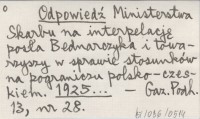 Odpowiedź Ministerstwa
Skarbu na interpelację
posła Bednarczyka i towa-
rzyszy w sprawie stosunków
na pograniczu polsko-czes-
kiem. 1925... — Gaz. Podh.
13, nr 28.